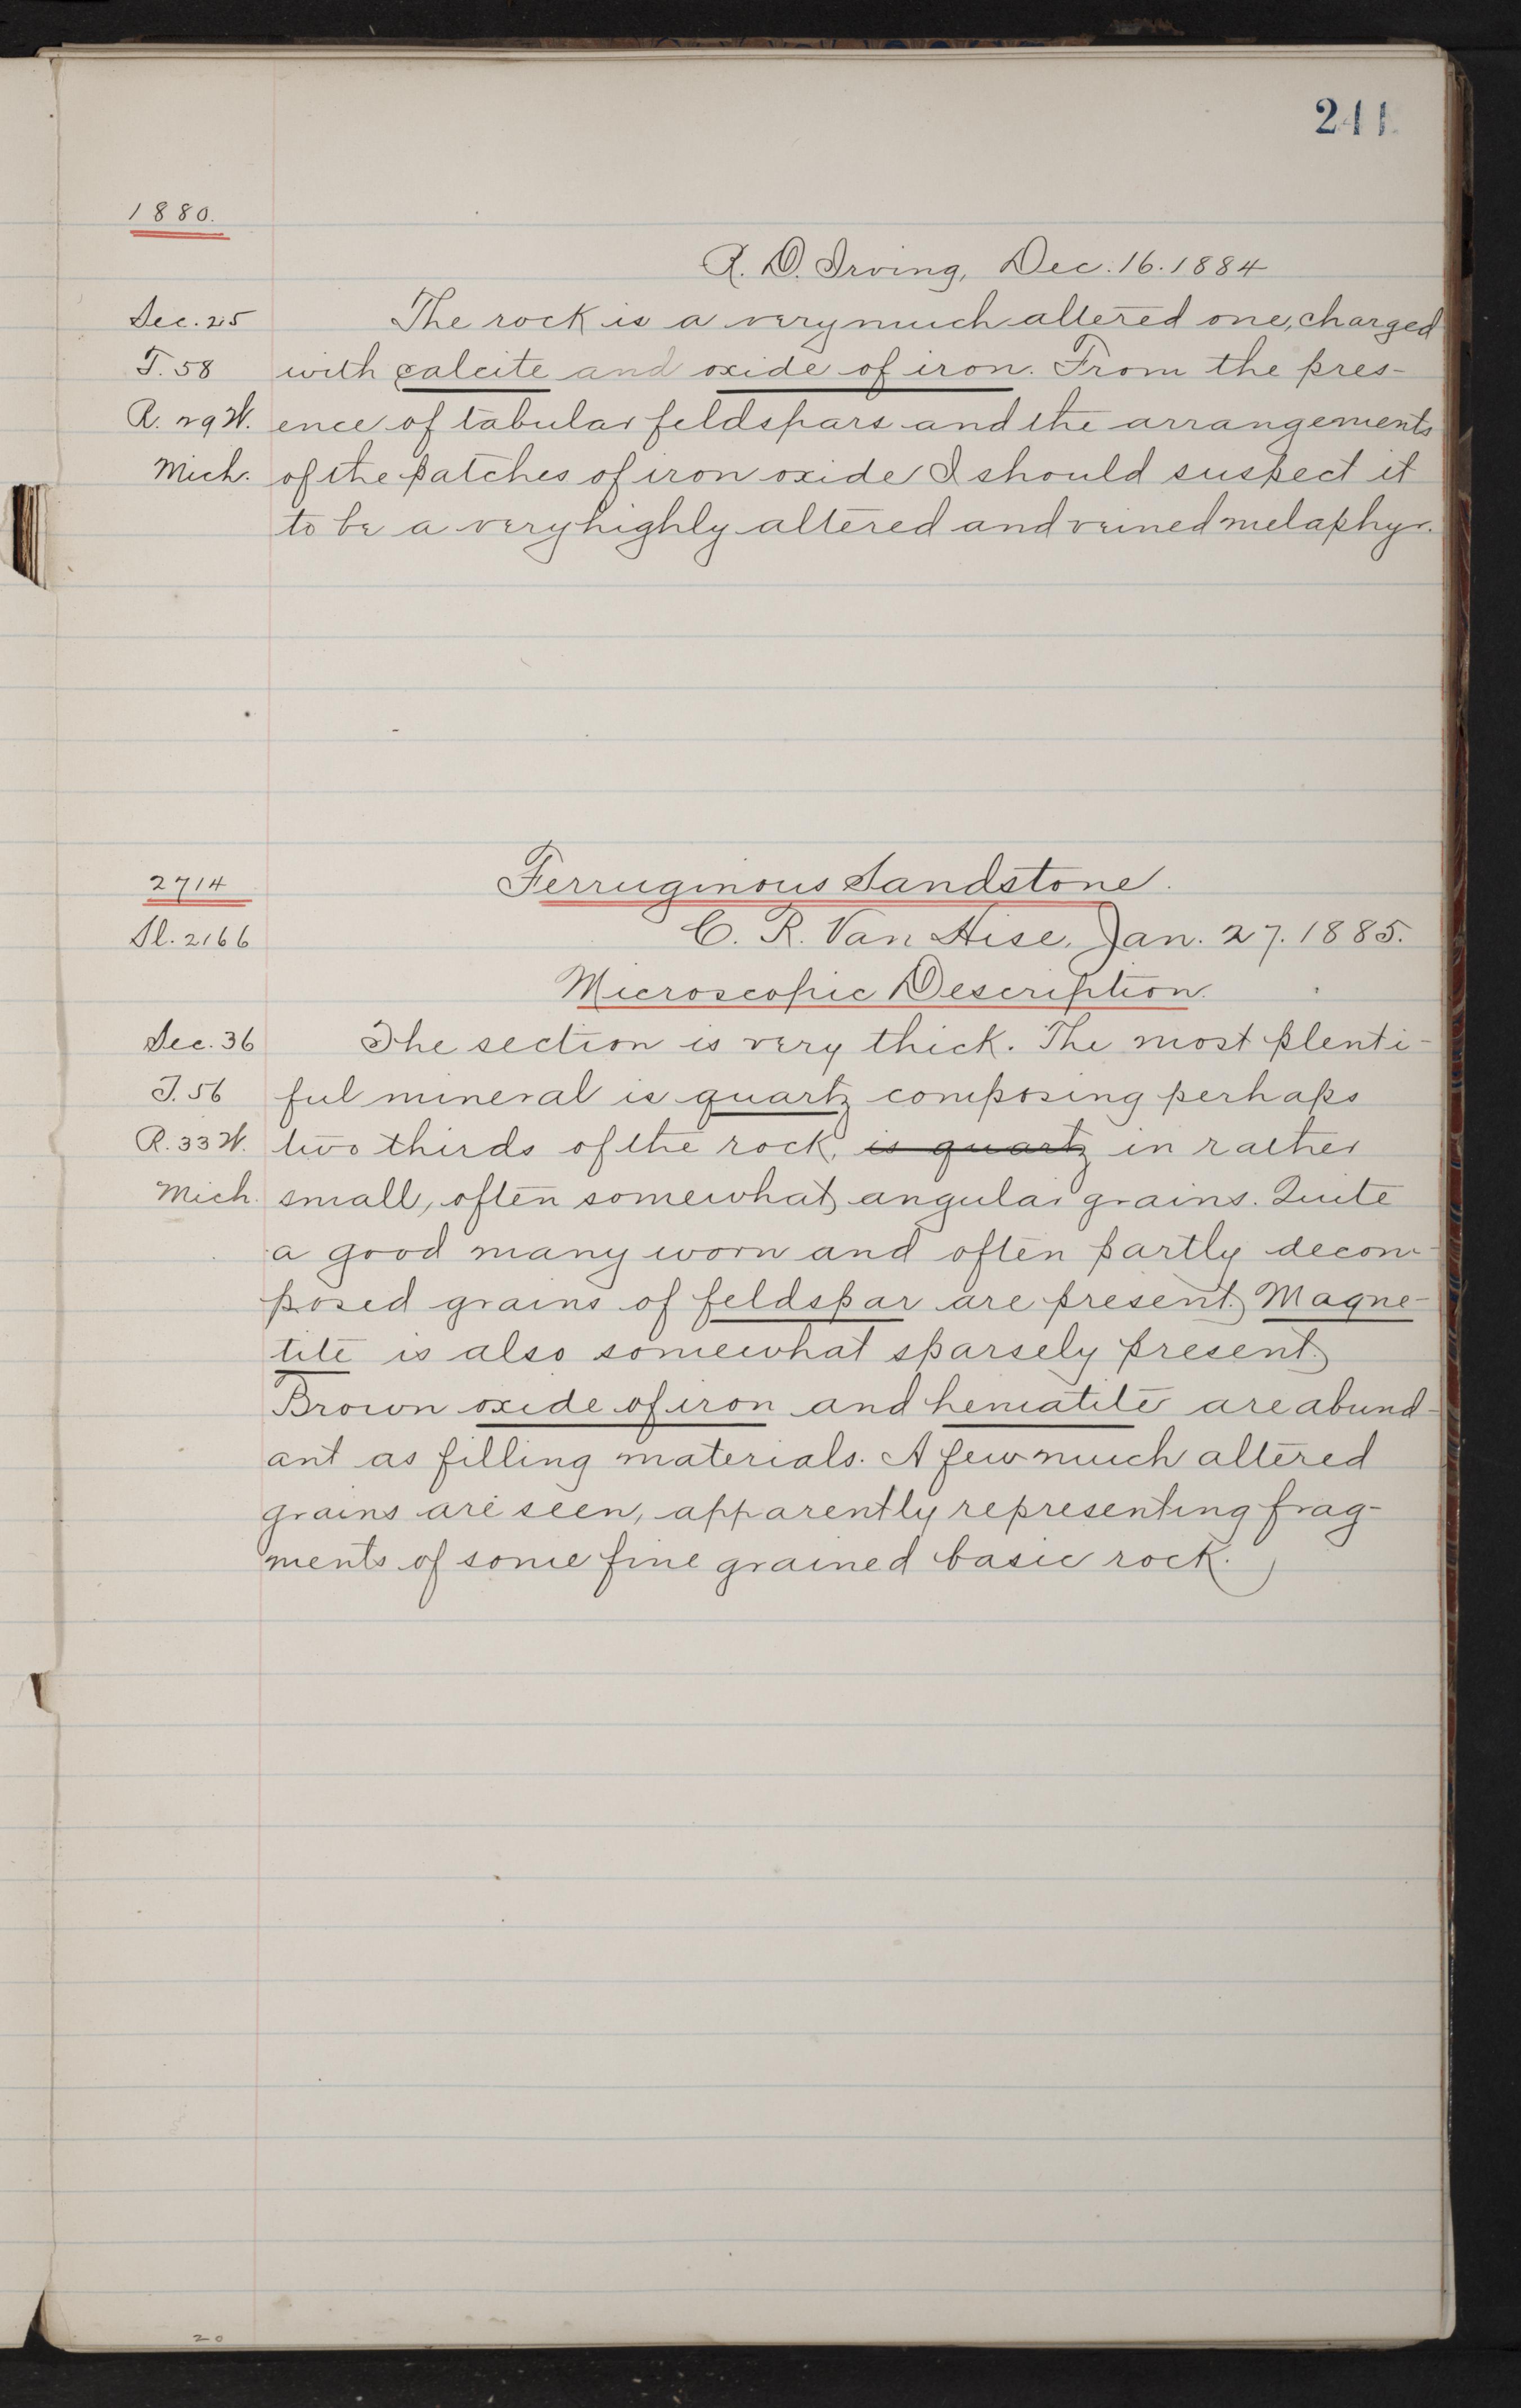 241
1880.
R. D. Irving, Dec. 16. 1884
Sec. 25 The rock is a very much altered one, charged
T. 58 with calcite and oxide of iron. From the pres-
R. 29 W. ence of tabular feldspars and the arrangements
Mich. of the patches of iron oxide I should suspect it
to be a very highly altered and veined melaphyr.
2714 Ferruginous Sandstone.
Sl. 2166 C. R. Van Hise, Jan. 27. 1885.
Microscopic Description.
Sec. 36 The section is very thick. The most plenti-
T. 56 ful mineral is quartz composing perhaps
R. 33 W. two thirds of the rock, is quartz in rather
Mich. small, often somewhat angular grains. Quite
a good many worn and often partly decom-
posed grains of feldspar are present. Magne-
tite is also somewhat sparsely present.
Brown oxide of iron and hematite are abund-
ant as filling materials. A few much altered
grains are seen, apparently representing frag-
ments of some fine grained basic rock.
20